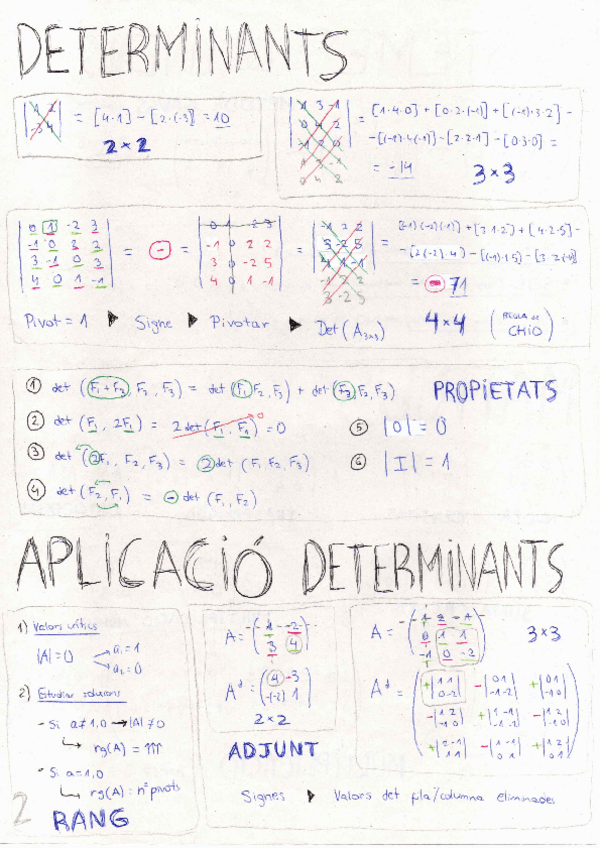 DETERMINANTS
|1 2|
|-3 4|
= [4·1] - [2·(-3)] = 10
2×2
1 3 -1
0 4 2
= [1·4·0] + [0·2·(-1)] + [(-1)·3·2] -
-[(-1)·4·(-1)] - [2·2·1] - [0·3·0] =
= -14
3×3
0 1 -2 3
-1 0 2 2
3 -1 0 3
4 0 1 -1
= - =
0 1 -2 3
-1 0 2 2
3 0 -2 5
4 0 1 -1
=
-1 2 2
3 -2 5
4 1 -1
-1 2 2
3 -2 5
= [(-1)·(-2)·(-1)] + [3·1·2] + [4·2·5] -
-[2·(-2)·4] - [(-1)·1·5] - [3·2·(-1)]
= - 71
Pivot = 1 ▶ Signe ▶ Pivotar ▶ Det (A3x3)
4×4
(REGLA de CHIO)
PROPIETATS
① det (F1+F2, F2, F3) = det (F1 F2, F3) + det (F3 F2, F3)
② det (F1, 2F1) = 2 det (F1, F1) = 0
0
③ det (2F1, F2, F3) = 2 det (F1 F2 F3)
④ det (F2, F1) = - det (F1, F2)
⑤ |0| = 0
⑥ |I| = 1
APLICACIÓ DETERMINANTS
1) Valors crítics
|A| = 0
a1 = 1
a2 = 0
2) Estudiar solucions
- Si a ≠ 1,0 → |A| ≠ 0
rg(A) = m
- Si a = 1,0
rg(A) : nº pivots
RANG
2
A = (1 -2
3 4)
Ad = (4 -3
-(-2) 1)
2×2
ADJUNT
A = (1 2 -1
0 1 1
-1 0 -2)
3×3
Ad =
+|1 1 0 -2| -|0 1 -1 -2| +|0 1 -1 0|
-|1 2 -1 0|
+|2 -1 1 1| -|1 -1 0 1| +|1 2 0 1|
Signes ▶ Valors det fila/columna eliminades